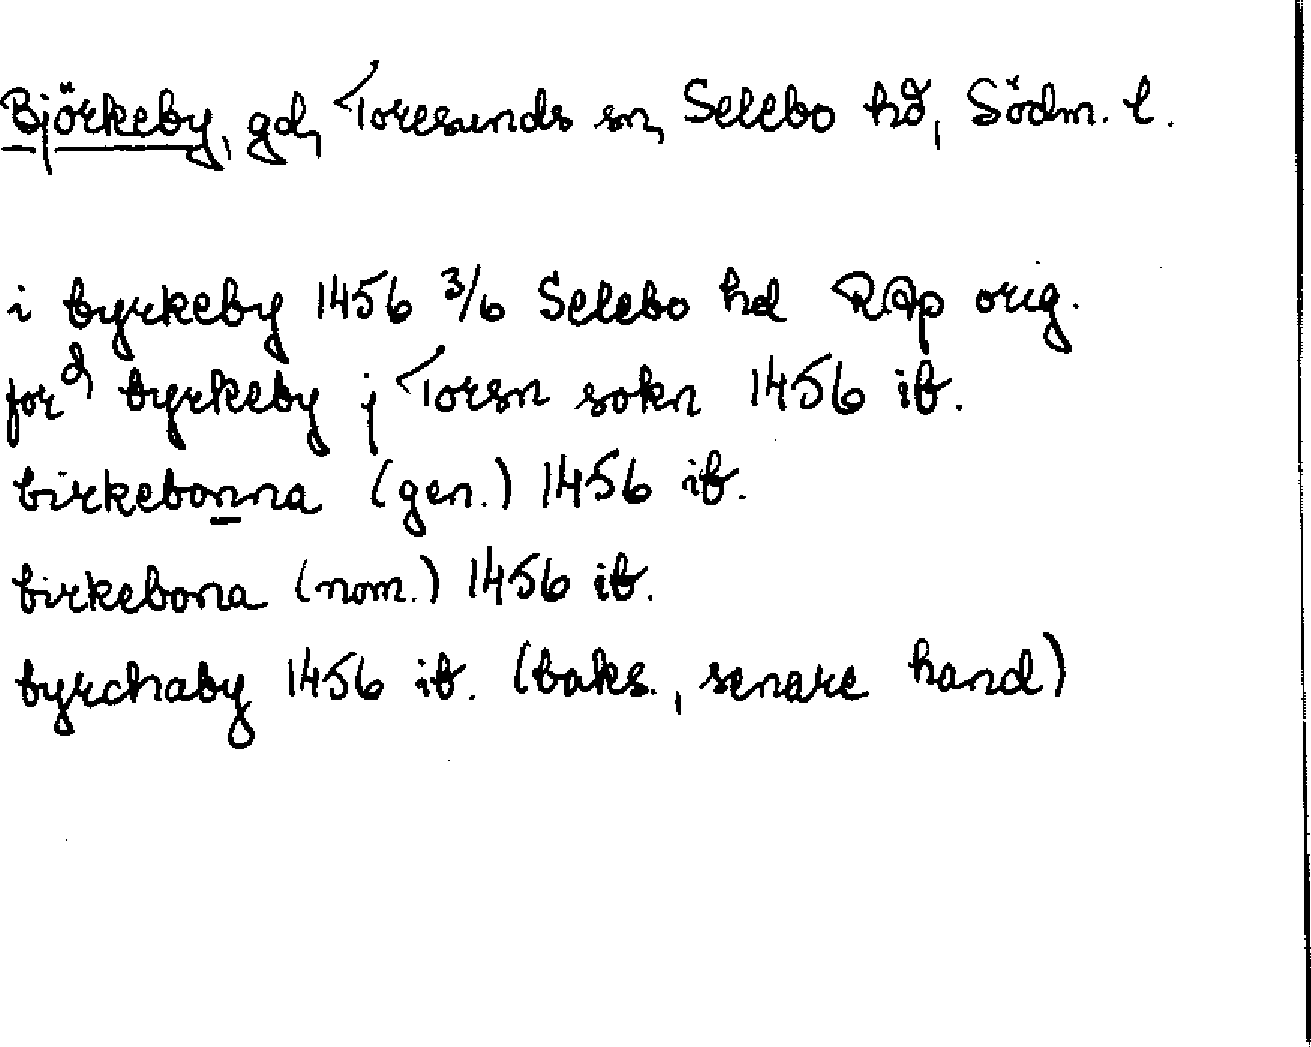 Björkeby, gd, Toresunds sn, Selebo hd, Södm. l.
i byrkeby 1456 3/6 Selebo hd RAp orig.
ford byrkeby j Torsn sokn 1456 ib.
birkebonna (gen.) 1456 ib.
birkebona (nom.) 1456 ib.
byrchaby 1456 ib. (baks., senare hand)